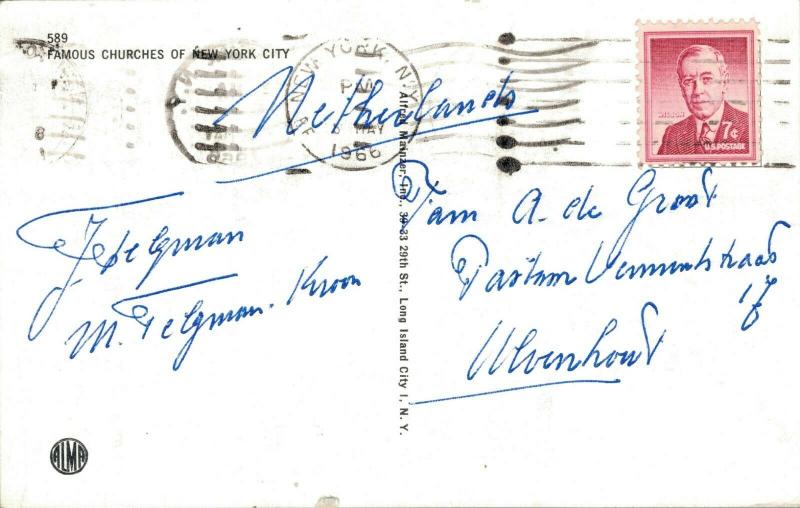 589
FAMOUS CHURCHES OF NEW YORK CITY
NEW YORK, N.Y.
PM
MAY
1966
WILSON
7¢
U.S. POSTAGE
Netherlands
Alfred Mainzer, Inc., 39-33 29th St., Long Island City 1, N. Y.
Fam A. de Groot
Ulvenhout
17
J. Felgman
M. Felgman. Kroon
ALMA